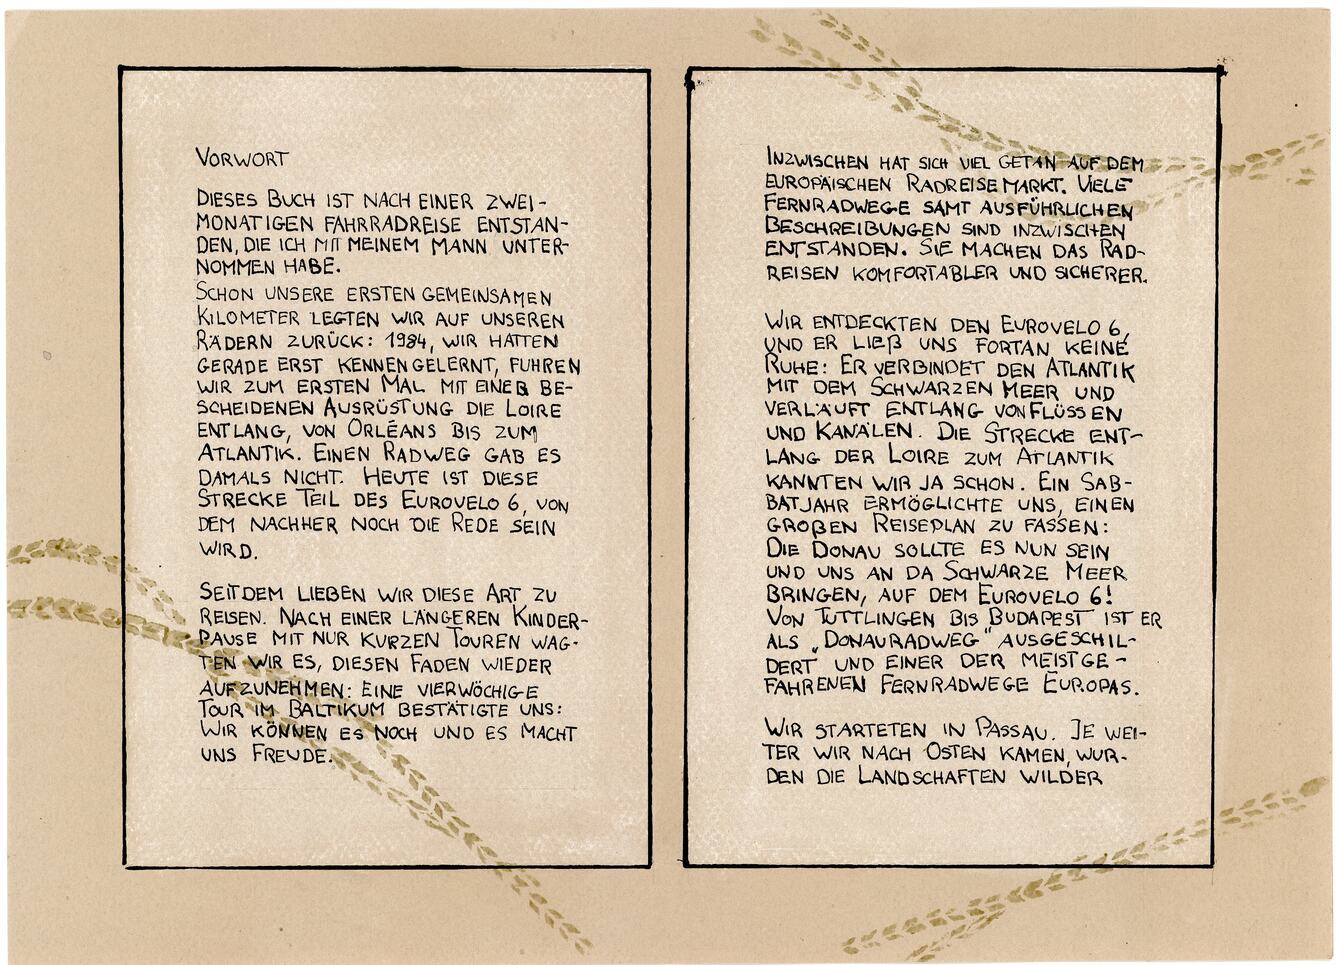 VORWORT
DIESES BUCH IST NACH EINER ZWEI-
MONATIGEN FAHRRADREISE ENTSTAN-
DEN, DIE ICH MIT MEINEM MANN UNTER-
NOMMEN HABE.
SCHON UNSERE ERSTEN GEMEINSAMEN
KILOMETER LEGTEN WIR AUF UNSEREN
RÄDERN ZURÜCK: 1984, WIR HATTEN
GERADE ERST KENNENGELERNT, FUHREN
WIR ZUM ERSTEN MAL MIT EINER BE-
SCHEIDENEN AUSRÜSTUNG DIE LOIRE
ENTLANG, VON ORLÉANS BIS ZUM
ATLANTIK. EINEN RADWEG GAB ES
DAMALS NICHT. HEUTE IST DIESE
STRECKE TEIL DES EUROVELO 6, VON
DEM NACHHER NOCH DIE REDE SEIN
WIRD.
SEITDEM LIEBEN WIR DIESE ART ZU
REISEN. NACH EINER LÄNGEREN KINDER-
PAUSE MIT NUR KURZEN TOUREN WAG-
TEN WIR ES, DIESEN FADEN WIEDER
AUFZUNEHMEN: EINE VIERWÖCHIGE
TOUR IM BALTIKUM BESTÄTIGTE UNS:
WIR KÖNNEN ES NOCH UND ES MACHT
UNS FREUDE.
INZWISCHEN HAT SICH VIEL GETAN AUF DEM
EUROPÄISCHEN RADREISEMARKT. VIELE
FERNRADWEGE SAMT AUSFÜHRLICHEN
BESCHREIBUNGEN SIND INZWISCHEN
ENTSTANDEN. SIE MACHEN DAS RAD-
REISEN KOMFORTABLER UND SICHERER.
WIR ENTDECKTEN DEN EUROVELO 6,
UND ER LIEß UNS FORTAN KEINE
RUHE: ER VERBINDET DEN ATLANTIK
MIT DEM SCHWARZEN MEER UND
VERLÄUFT ENTLANG VON FLÜSSEN
UND KANÄLEN. DIE STRECKE ENT-
LANG DER LOIRE ZUM ATLANTIK
KANNTEN WIR JA SCHON. EIN SAB-
BATJAHR ERMÖGLICHTE UNS, EINEN
GROßEN REISEPLAN ZU FASSEN:
DIE DONAU SOLLTE ES NUN SEIN
UND UNS AN DA SCHWARZE MEER
BRINGEN, AUF DEM EUROVELO 6!
VON TUTTLINGEN BIS BUDAPEST IST ER
ALS „DONAURADWEG" AUSGESCHIL-
DERT UND EINER DER MEISTGE-
FAHRENEN FERNRADWEGE EUROPAS.
WIR STARTETEN IN PASSAU. JE WEI-
TER WIR NACH OSTEN KAMEN, WUR-
DEN DIE LANDSCHAFTEN WILDER